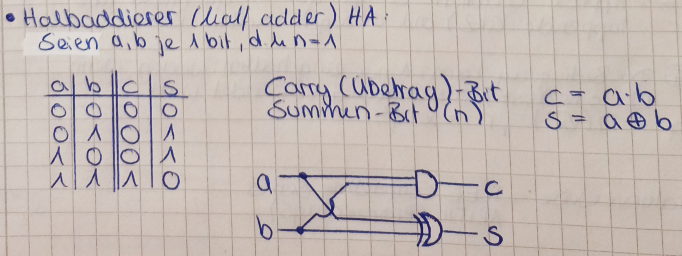 • Halbaddierer (half adder) HA:
Seien a, b je 1 bit, d.h n=1
a b c s
0 0 0 0
0 1 0 1
1 0 0 1
1 1 1 0
Carry (Übetrag)-Bit c = a·b
Summen-Bit (n) s = a⊕b
a c
b s